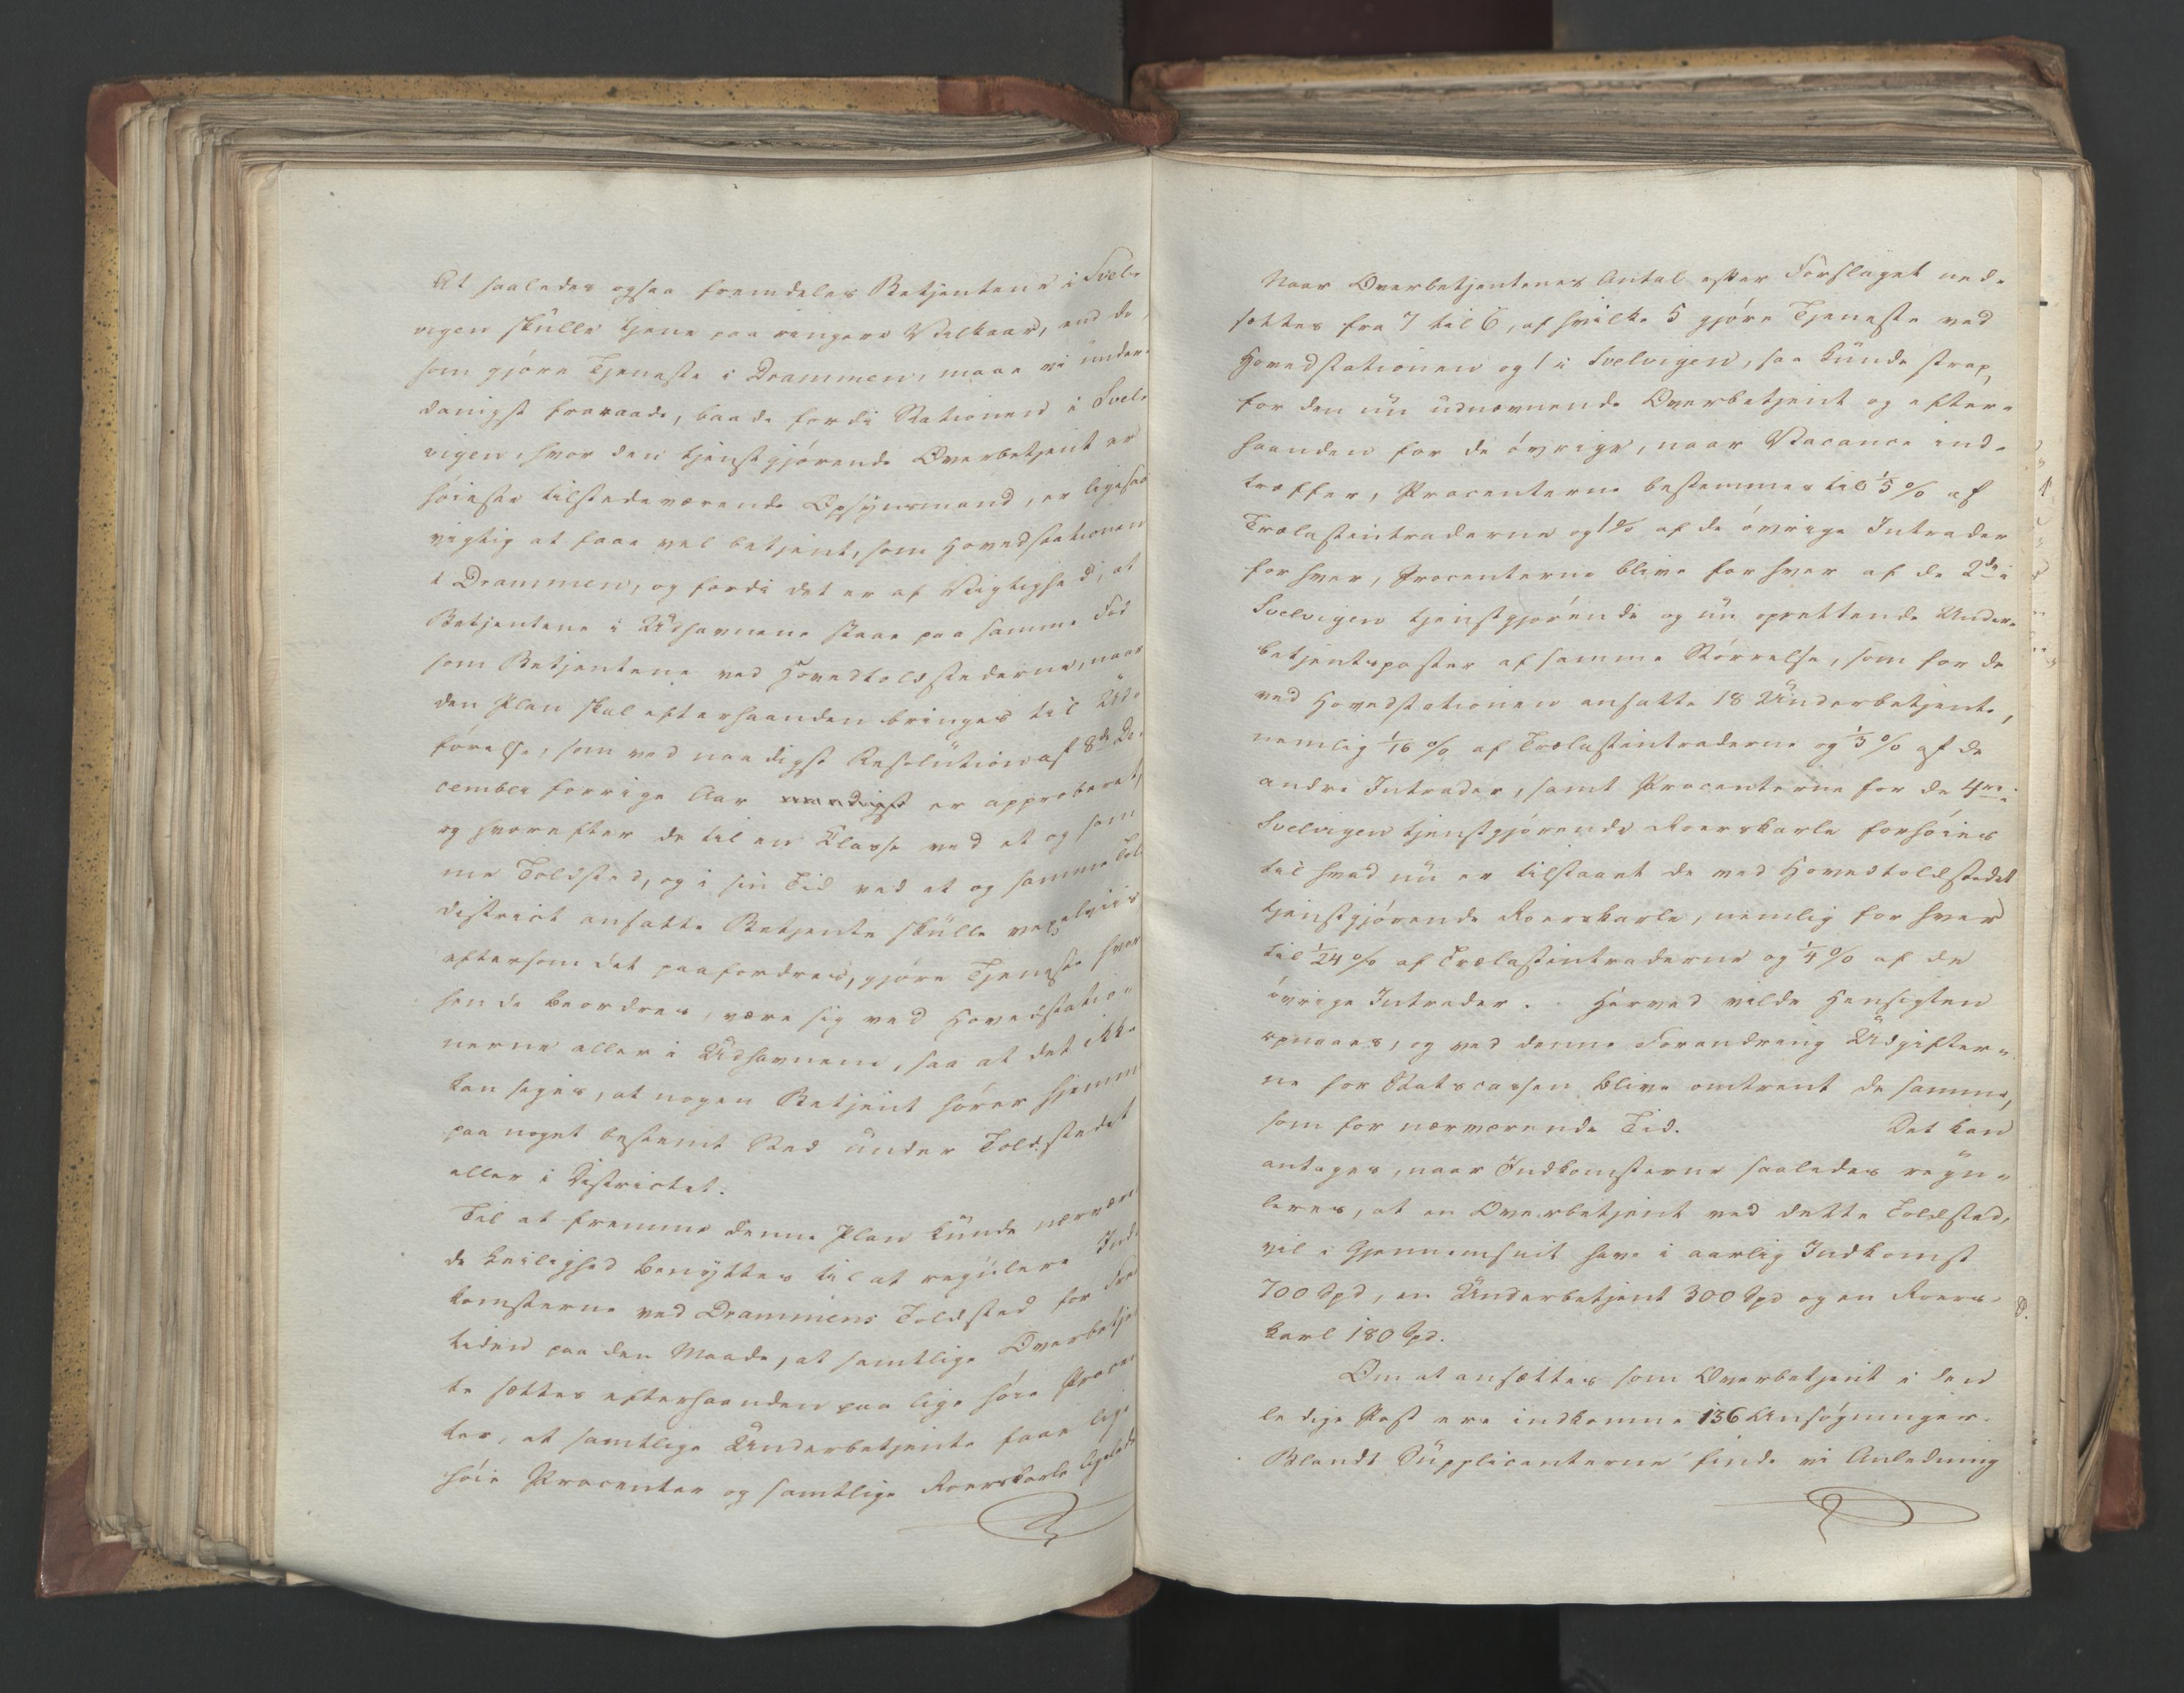 At saaledes ogsaa fremdeles Betjentene i Svel-
vigen skulle tjene paa ringere Vilkaar, end de,
som gjøre Tjeneste i Drammen, maae vi under-
danigst fraraade, baade fordi Stationen i Svel-
vigen, hvor den tjenstgjørende Overbetjent er
høieste tilstedeværende Opsynsmand, er ligesaa
vigtig at faae vel betjent, som Hovedstationen
i Drammen, og fordi det er af Vigtighed, at
Betjentene i Udhavnene staae paa samme Fod
som Betjentene ved Hovedtoldstederne, naar
den Plan skal efterhaanden bringes til Ud-
førelse, som ved naadigst Resolution af 8de De-
cember forrige Aar naadigst er approberet,
og hvorefter de til en Classe ved et og sam
me Toldsted, og i sin Tid ved et og samme Told
district ansatte Betjente skulle vexelviis
eftersom det paafordres, gjøre Tjeneste hvor
hen de beordres, være sig ved Hovedstatio-
nerne eller i Udhavnene, saa at det ikke
kan siges, at nogen Betjent hører hjemme
paa noget bestemt Sted under Toldstedet
eller i Districtet.
Til at fremme denne Plan kunde nærværen
de Leilighed benyttes til at regulere Ind-
komsterne ved Drammens Toldsted for Frem
tiden paa den Maade, at samtlige Overbetjen
te sættes efterhaanden paa lige høie Procen
ter, at samtlige Underbetjente faae lige
høie Procenter og samtlige Roerskarle ligeledes
Naar Overbetjentenes Antal efter Forslaget ned-
sættes fra 7 til 6, af hvilke 5 gjøre Tjeneste ved
Hovedstationen og 1 i Svelvigen, saa kunde strax,
for den nu udnævnende Overbetjent og efter-
haanden for de øvrige, naar Vacance ind-
træffer, Procenterne bestemmes til 1/5 % af
Trælastintraderne og 1 % af de øvrige Intrader
for hver, Procenterne blive for hver af de 2de i
Svelvigen tjenstgjørende og nu oprettende Under-
betjentsposter af samme Størrelse, som for de
ved Hovedstationen ansatte 18 Underbetjente,
nemlig 1/16 % af Trælastintraderne og 1/3 % af de
andre Intrader, samt Procenterne for de 4re i
Svelvigen tjenstgjørende Roerskarle forhøies
til hvad nu er tilstaaet de ved Hovedtoldstedet
tjenstgjørende Roerskarle, nemlig for hver
til 1/24 % af Trælastintraderne og 1/4 % af de
øvrige Intrader. Herved vilde Hensigten
opnaaes, og ved denne Forandring Udgifter-
ne for Statscassen blive omtrent de samme,
som for nærværende Tid. Det kan
antages, naar Indkomsterne saaledes regu-
leres, at en Overbetjent ved dette Toldsted,
vil i Gjennemsnit have i aarlig Indkomst
700 Spd, en Underbetjent 300 Spd og en Roers-
karl 180 Spd.
Om at ansættes som Overbetjent i den
ledige Post ere indkomne 136 Ansøgninger.
Blandt Supplicanterne finde vi Anledning